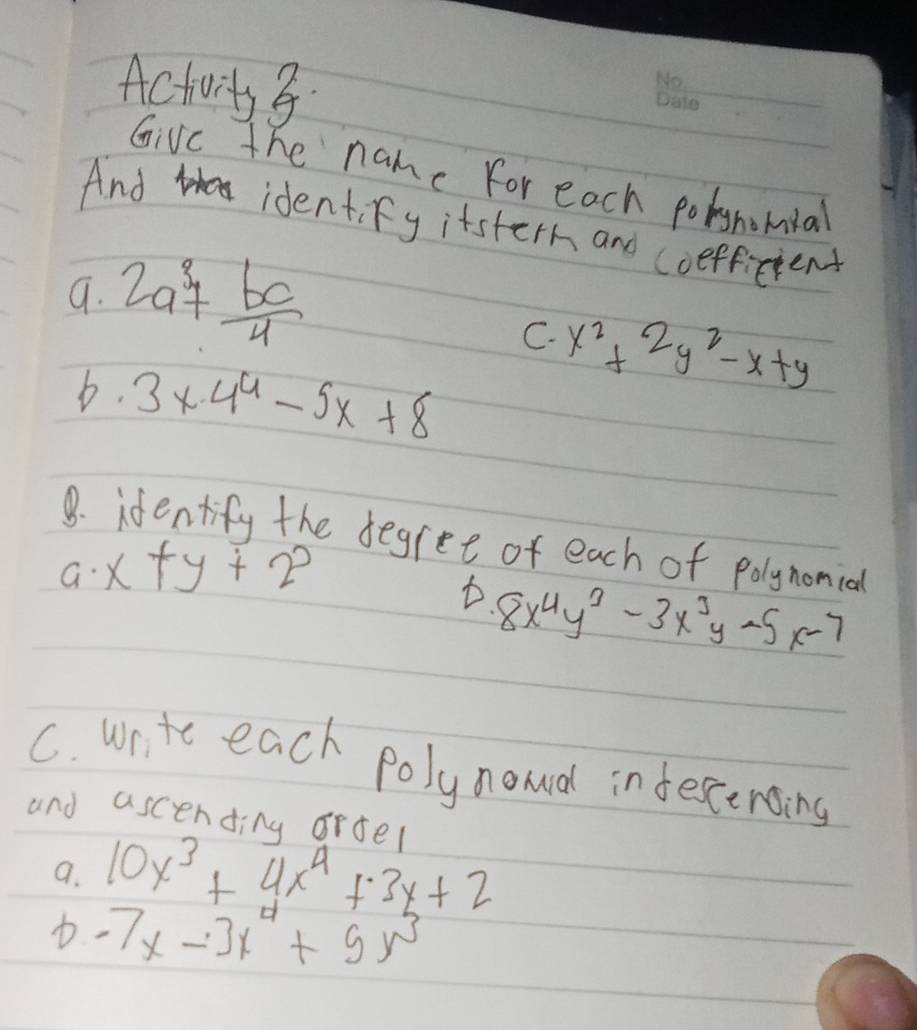 No.
Date
Activity 3.
Give the name for each polynomial
And identify itsterm and coefficient
a. 2a³+ bc/4
c. x² + 2y² - x + y
b. 3x.4⁴ - 5x + 8
B. identify the degree of each of polynomial
a. x + y + 2²
b. 8x⁴y³ - 3x³y - 5x - 7
C. write each polynomial in descending
and ascending order
a. 10x³ + 4x⁴ + 3x + 2
b. -7x - 3x⁴ + 5x³